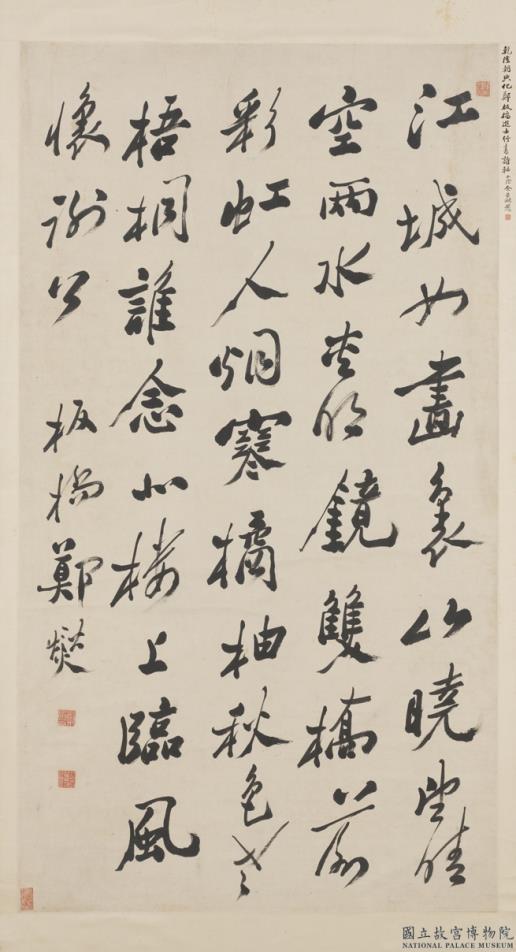 乾隆朝興化鄭板橋進士行書詩軸
江城如畫裏山曉望晴
空兩水夾明鏡雙橋落
彩虹人烟寒橘柚秋色老
梧桐誰念北樓上臨風
懷謝公 板橋鄭燮
國立故宮博物院
NATIONAL PALACE MUSEUM